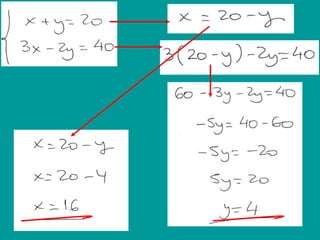 x + y = 20
3x - 2y = 40
x = 20 - y
3(20 - y) - 2y = 40
60 - 3y - 2y = 40
-5y = 40 - 60
-5y = -20
5y = 20
y = 4
x = 20 - y
x = 20 - 4
x = 16